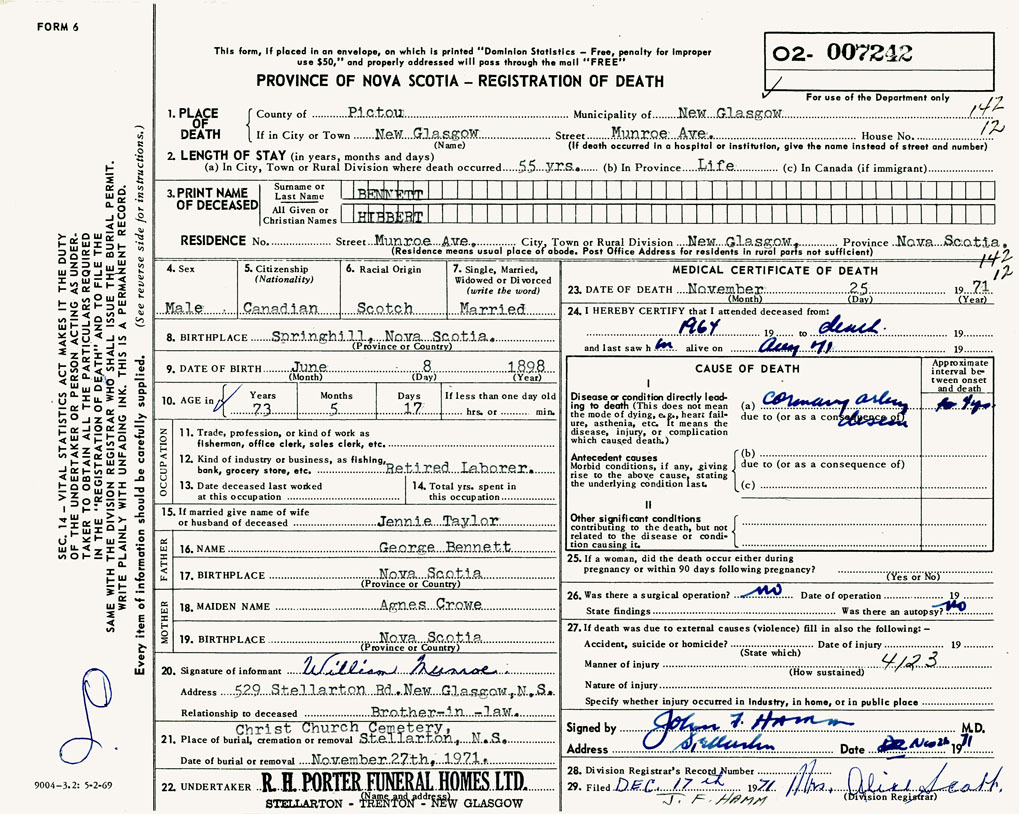 FORM 6
This form, if placed in an envelope, on which is printed "Dominion Statistics – Free, penalty for improper
use $50," and properly addressed will pass through the mail "FREE"
PROVINCE OF NOVA SCOTIA – REGISTRATION OF DEATH
02- 007242
For use of the Department only
1. PLACE OF DEATH
County of Pictou Municipality of New Glasgow 142
If in City or Town New Glasgow Street Munroe Ave. House No. 12
(Name) (If death occurred in a hospital or institution, give the name instead of street and number)
2. LENGTH OF STAY (in years, months and days)
(a) In City, Town or Rural Division where death occurred 55 yrs. (b) In Province Life (c) In Canada (if immigrant)
3. PRINT NAME OF DECEASED
Surname or Last Name BENNETT
All Given or Christian Names HIBBERT
RESIDENCE No. Street Munroe Ave. City, Town or Rural Division New Glasgow, Province Nova Scotia.
(Residence means usual place of abode. Post Office Address for residents in rural parts not sufficient)
142
12
4. Sex
Male
5. Citizenship
(Nationality)
Canadian
6. Racial Origin
Scotch
7. Single, Married,
Widowed or Divorced
(write the word)
Married
8. BIRTHPLACE Springhill, Nova Scotia.
(Province or Country)
9. DATE OF BIRTH June 8 1898
(Month) (Day) (Year)
10. AGE in
Years Months Days If less than one day old
73 5 17 hrs. or min.
OCCUPATION
11. Trade, profession, or kind of work as
fisherman, office clerk, sales clerk, etc.
12. Kind of industry or business, as fishing,
bank, grocery store, etc. Retired Laborer.
13. Date deceased last worked
at this occupation
14. Total yrs. spent in
this occupation
15. If married give name of wife
or husband of deceased Jennie Taylor
FATHER
16. NAME George Bennett
17. BIRTHPLACE Nova Scotia
(Province or Country)
MOTHER
18. MAIDEN NAME Agnes Crowe
19. BIRTHPLACE Nova Scotia
(Province or Country)
20. Signature of informant William Munroe.
Address 529 Stellarton Rd. New Glasgow, N.S.
Relationship to deceased Brother-in -law.
Christ Church Cemetery,
21. Place of burial, cremation or removal Stellarton, N.S.
Date of burial or removal November 27th, 1971.
22. UNDERTAKER R. H. PORTER FUNERAL HOMES LTD.
(Name and address)
STELLARTON - TRENTON - NEW GLASGOW
MEDICAL CERTIFICATE OF DEATH
23. DATE OF DEATH November 25 1971
(Month) (Day) (Year)
24. I HEREBY CERTIFY that I attended deceased from:
1964 19 to death. 19
and last saw h im alive on Aug 71 19
CAUSE OF DEATH
Approximate
interval be-
tween onset
and death
I
Disease or condition directly lead-
ing to death (This does not mean
the mode of dying, e.g., heart fail-
ure, asthenia, etc. It means the
disease, injury, or complication
which caused death.)
(a) coronary artery
due to (or as a consequence of)
disease
Antecedent causes
Morbid conditions, if any, giving
rise to the above cause, stating
the underlying condition last.
(b)
due to (or as a consequence of)
(c)
II
Other significant conditions
contributing to the death, but not
related to the disease or condi-
tion causing it.
25. If a woman, did the death occur either during
pregnancy or within 90 days following pregnancy?
(Yes or No)
26. Was there a surgical operation? no Date of operation 19
State findings Was there an autopsy? no
27. If death was due to external causes (violence) fill in also the following: –
Accident, suicide or homicide? Date of injury 19
(State which)
Manner of injury 4123
(How sustained)
Nature of injury
Specify whether injury occurred in Industry, in home, or in public place
Signed by John F. Hamm M.D.
Address Stellarton Date Nov 26 1971
28. Division Registrar's Record Number
29. Filed DEC. 17th 1971 Mrs. Alice Scott.
J. F. HAMM (Division Registrar)
SEC. 14 – VITAL STATISTICS ACT MAKES IT THE DUTY
OF THE UNDERTAKER OR PERSON ACTING AS UNDER-
TAKER TO OBTAIN ALL THE PARTICULARS REQUIRED
IN THE "REGISTRATION OF DEATH" AND TO FILE THE
SAME WITH THE DIVISION REGISTRAR WHO SHALL ISSUE THE BURIAL PERMIT.
WRITE PLAINLY WITH UNFADING INK. THIS IS A PERMANENT RECORD.
Every item of information should be carefully supplied. (See reverse side for instructions.)
9004-3.2: 5-2-69